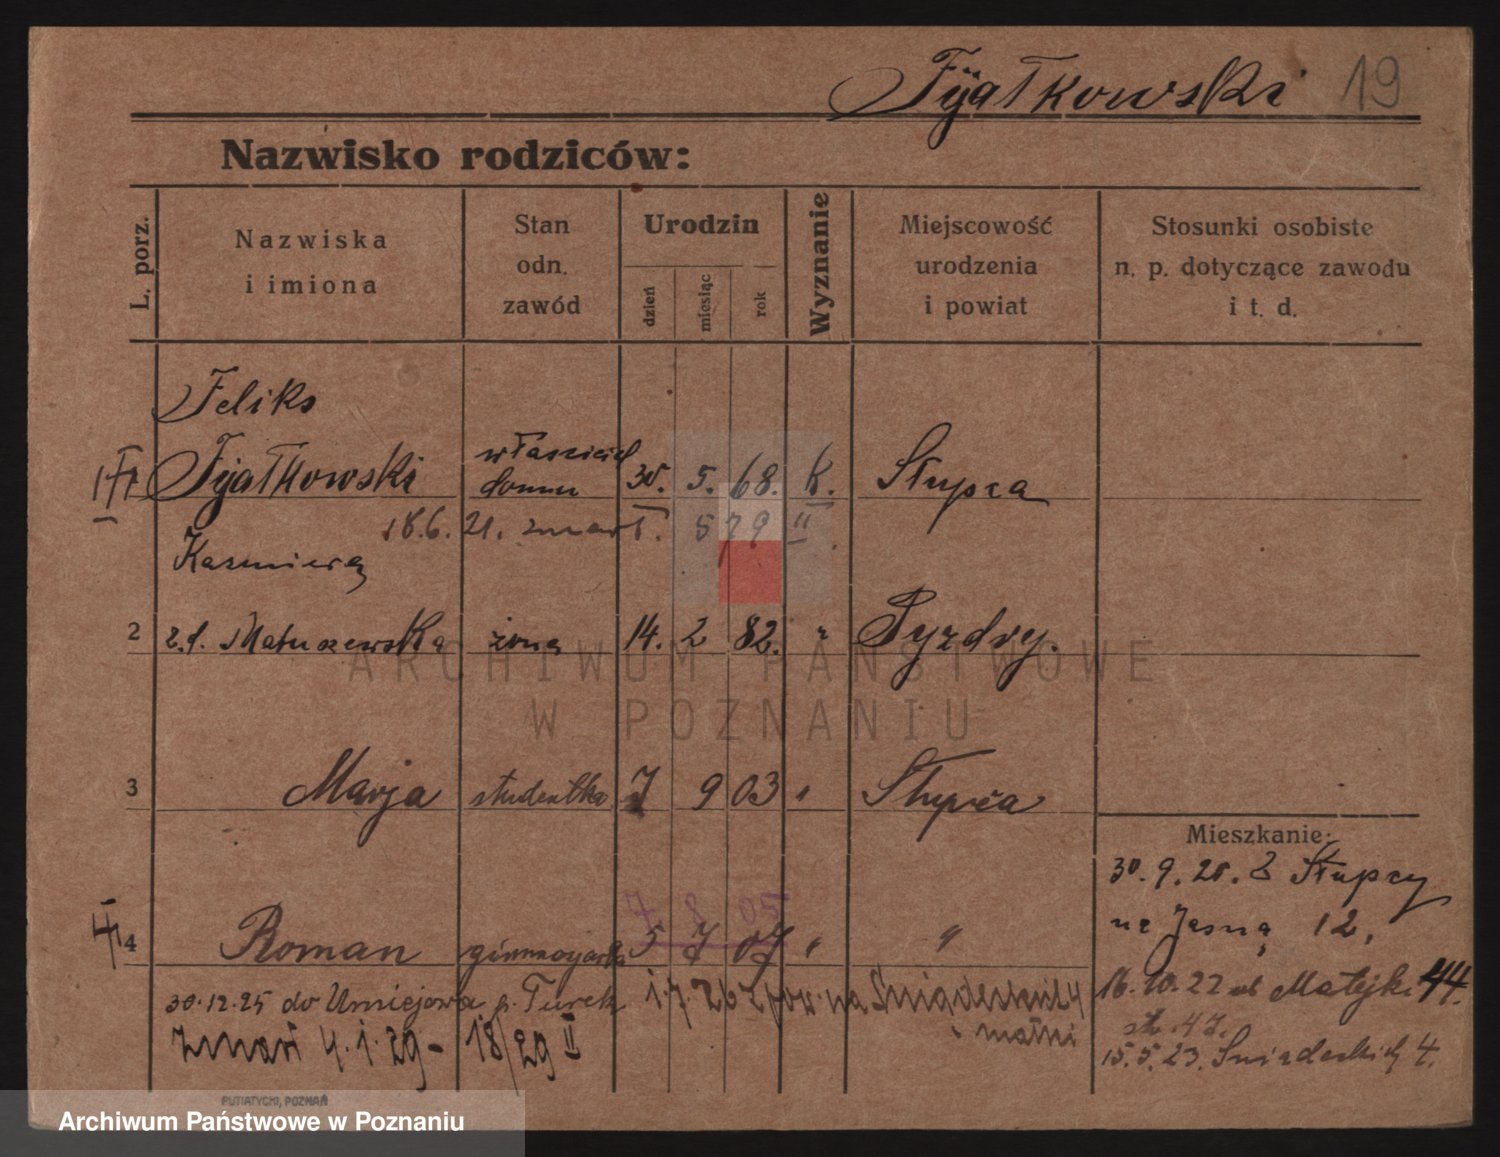 Fijałkowski 19
Nazwisko rodziców:
L. porz.
Nazwiska
i imiona
Stan
odn.
zawód
Urodzin
dzień
miesiąc
rok
Wyznanie
Miejscowość
urodzenia
i powiat
Stosunki osobiste
n. p. dotyczące zawodu
i t. d.
Feliks
Fijałkowski właściciel domu 30. 5. 68. K. Słupca
18.6. 21. zmarł. 579 II
Kazmiera
2 z.d. Matuszewska żona 14. 2 82. " Pyzdry.
3 Marja studentka 7 9 03 " Słupca
Mieszkanie:
30. 9. 21. z Słupcy
na Jasną 12.
7. 8 05
4 Roman 5 7 07 " "
16. 10. 22 ul Matejki 44.
30.12.25 do Uniejowa p. Turek 1.7.26 z pow. na Śniadeckich 4
matki
15. 5. 23. Śniadeckich 4.
Zmarł 4. 1. 29 - 18/29 II
PUTIATYCKI, POZNAŃ
ARCHIWUM PAŃSTWOWE
W POZNANIU
Archiwum Państwowe w Poznaniu